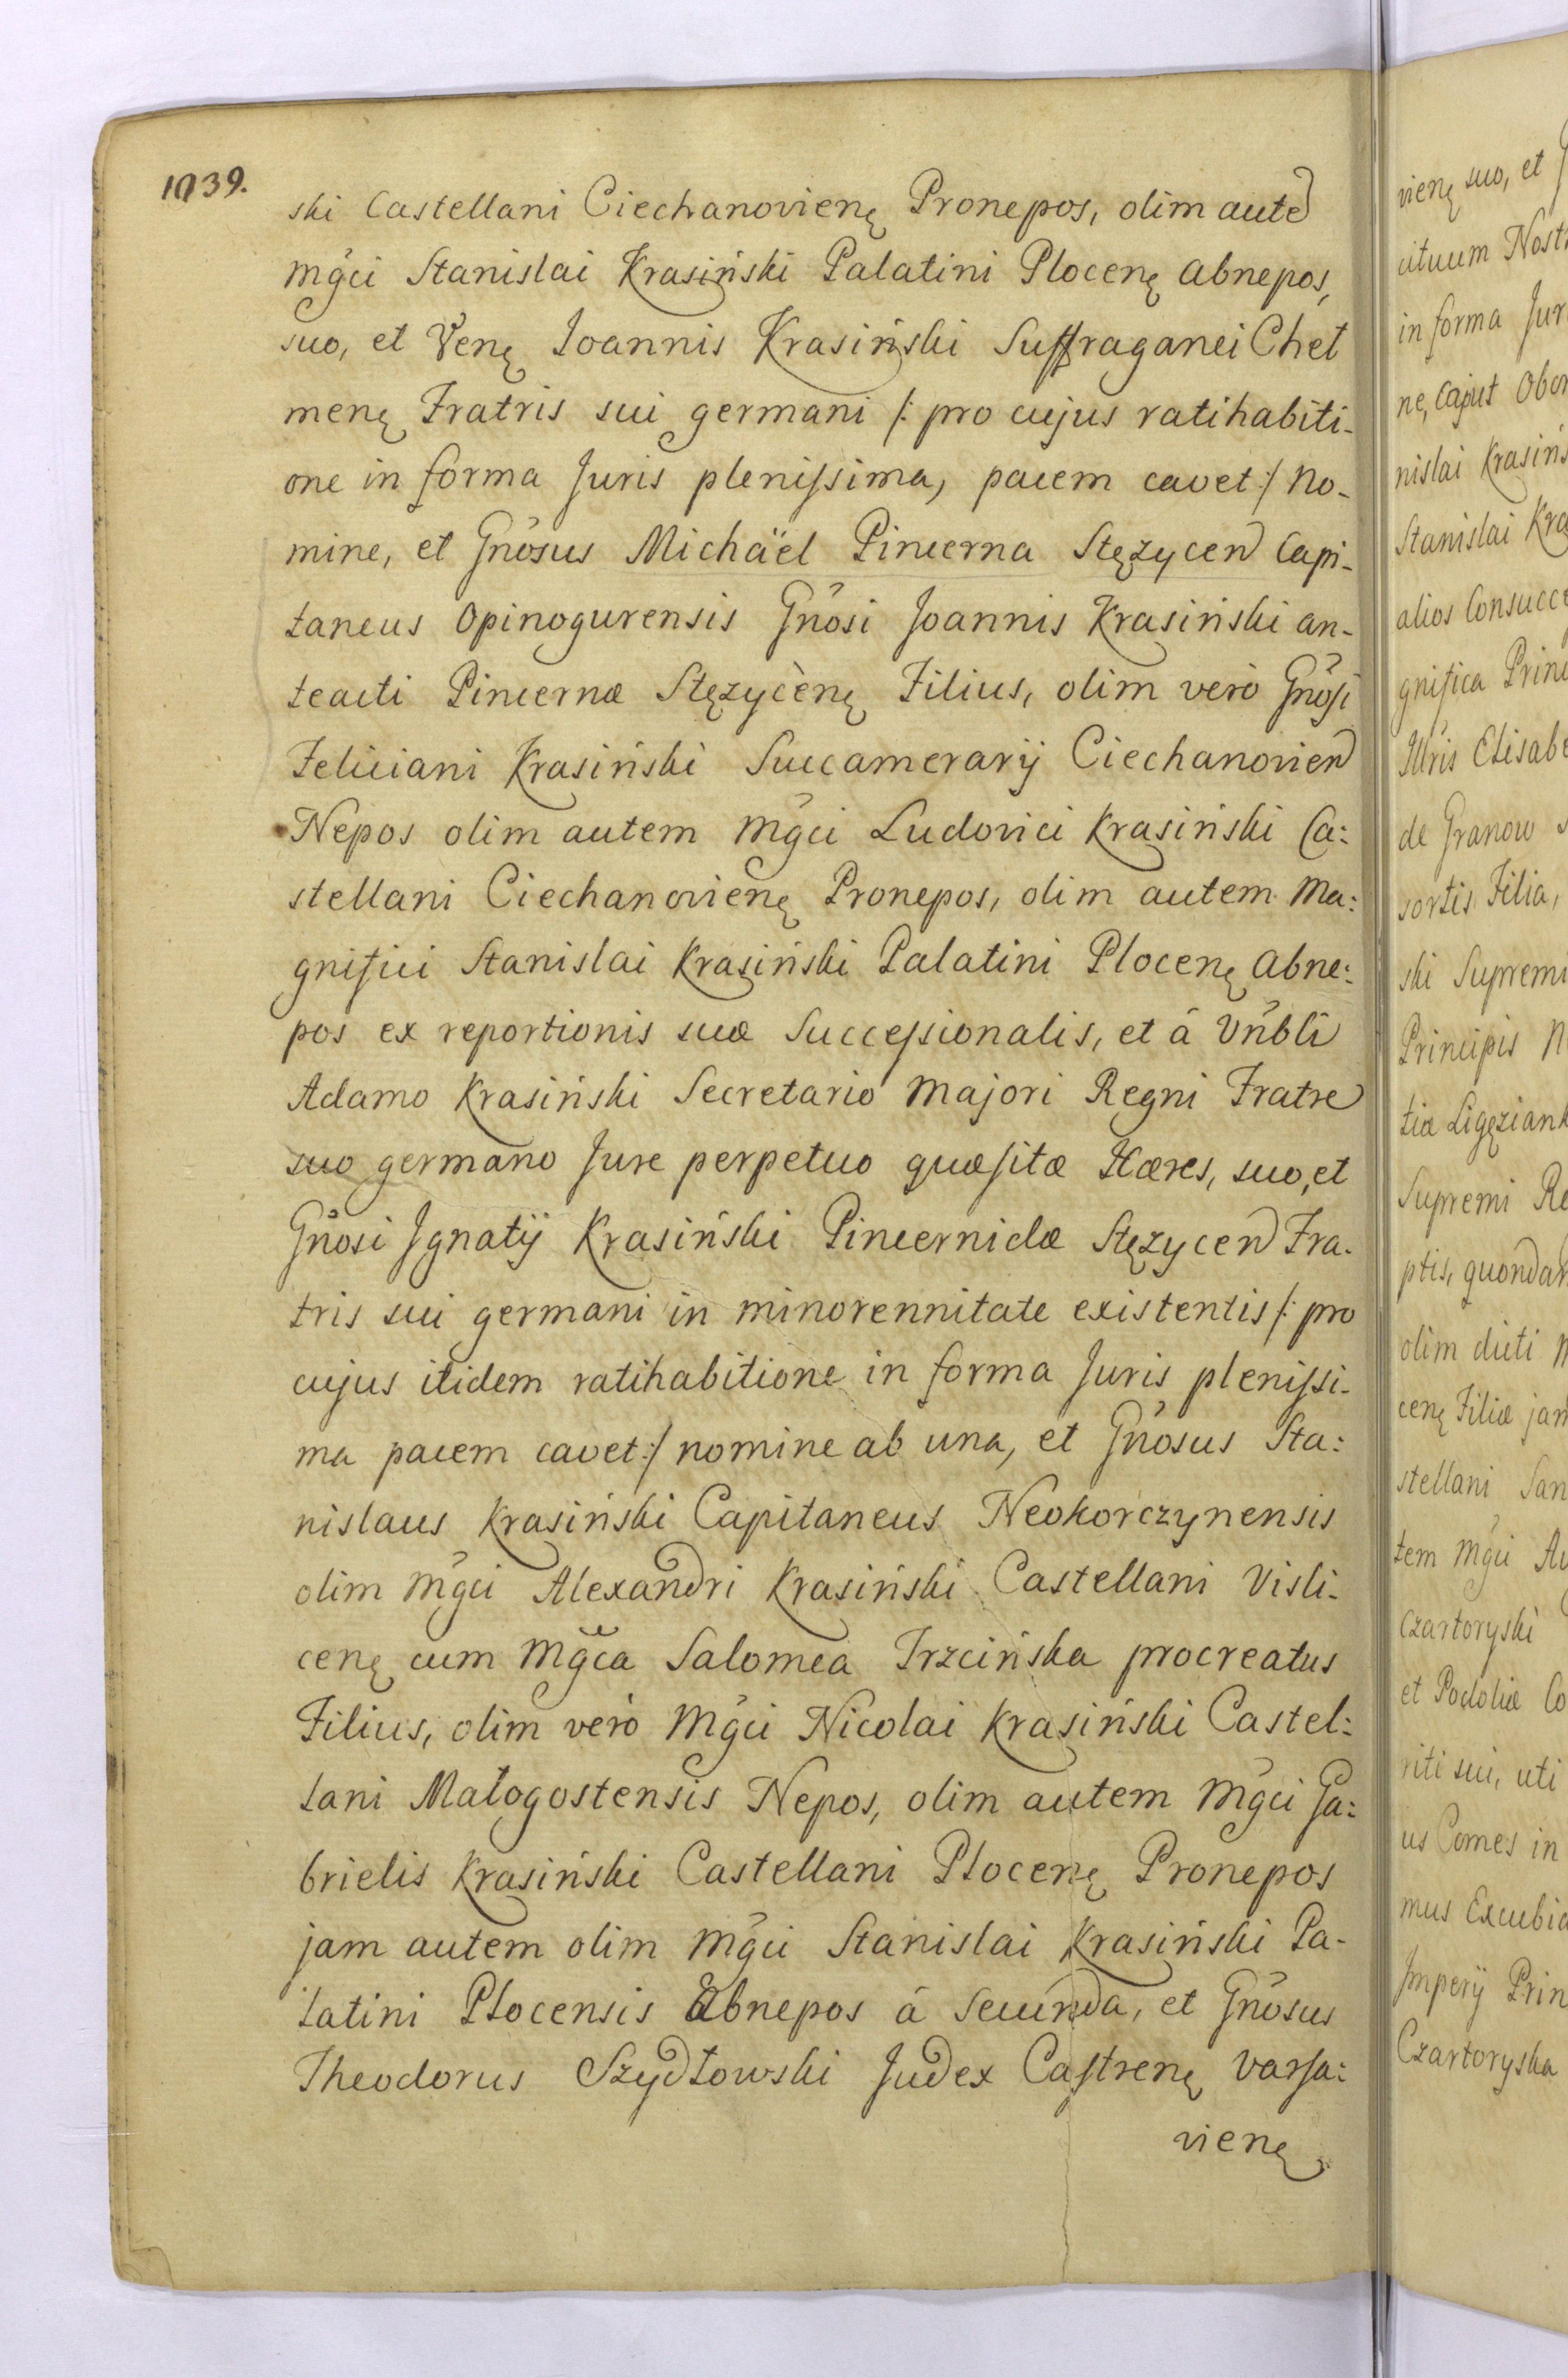 1039.
ski Castellani Ciechanovienę Pronepos, olim aute
Mgci Stanislai Krasiński Palatini Plocenę Abnepos,
suo, et Venę Ioannis Krasiński Suffraganei Cheł
menę Fratris sui germani /: pro cujus ratihabiti-
one in forma Juris plenissima, pacem cavet :/ No-
mine, et Gnosus Michaël Pincerna Stęzycen Capi-
taneus Opinogurensis Gnosi Joannis Krasiński an-
teacti Pincernæ Stęzycenę Filius, olim verò Gnosi
Feliciani Krasiński Succamerarij Ciechanovien
Nepos olim autem Mgci Ludovici Krasiński Ca:
stellani Ciechanovienę Pronepos, olim autem Ma:
gnifici Stanislai Krasiński Palatini Plocenę Abne:
pos ex reportionis suæ Successionalis, et á Vnbli
Adamo Krasiński Secretario Majori Regni Fratre
suo germano Jure perpetuo quæsitæ Hæres, suo, et
Gnosi Jgnatij Krasiński Pincernidæ Stęzycen Fra-
tris sui germani in minorennitate existentis /: pro
cujus itidem ratihabitione in forma Juris plenissi-
ma pacem cavet :/ nomine ab una, et Gnosus Sta:
nislaus Krasiński Capitaneus Neokorczynensis
olim Mgci Alexandri Krasiński Castellani Visli-
cenę cum Mgca Salomea Trzcińska procreatus
Filius, olim verò Mgci Nicolai Krasiński Castel:
lani Małogostensis Nepos, olim autem Mgci Ga:
brielis Krasiński Castellani Plocenę Pronepos
jam autem olim Mgci Stanislai Krasiński Pa-
latini Plocensis Abnepos á Secunda, et Gnosus
Theodorus Szydłowski Judex Castrenę Varsa:
vienę
vienę suo, et
in forma Jur
ne, Caput
nislai Krasińs
Stanislai Kra
alios Consucce
gnifica Princ
Illris Elisabe
de Granow
sortis Filia,
ski Supremi
Principis
tiæ Ligęziank
Supremi Re
ptis, quondam
olim dicti
cenę Filiæ jam
stellani San
tem Mgci Au
Czartoryski
et Podoliæ Co
riti sui, uti
us Comes in
mus Excubia
Jmperij Prin
Czartoryska